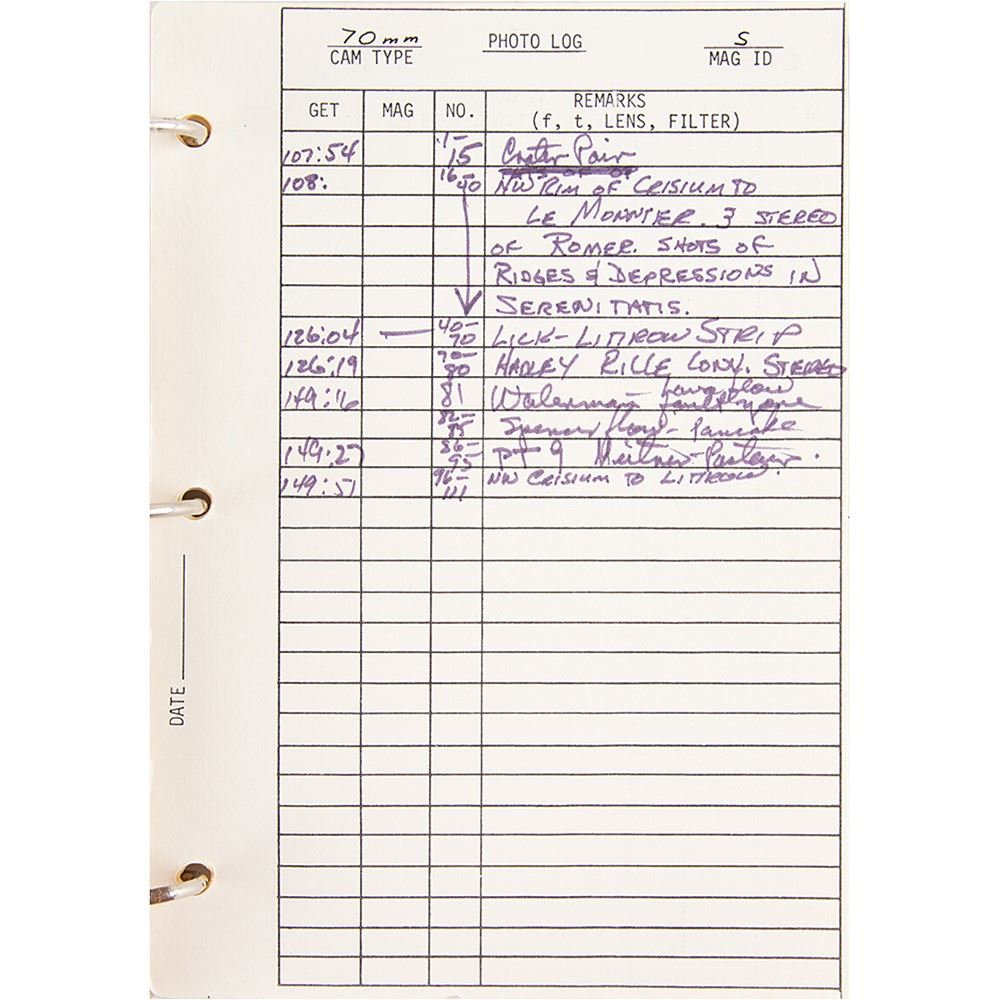 70mm PHOTO LOG S
CAM TYPE MAG ID
GET MAG NO. REMARKS
(f, t, LENS, FILTER)
107:54 1-15 Crater Pair
108: 16-40 NW RIM OF CRISIUM TO
LE MONNIER. 3 STEREO
OF ROMER. SHOTS OF
RIDGES & DEPRESSIONS IN
SERENITATIS.
126:04 — 40-70 LICK-LITTROW STRIP
126:19 70-80 HADLEY RILLE CONV. STEREO
149:16 81 Waterman
82-85 flow - Pancake
149:27 86-95 pt 9 Meitner-Pasteur.
149:51 96-111 NW CRISIUM TO LITTROW.
DATE